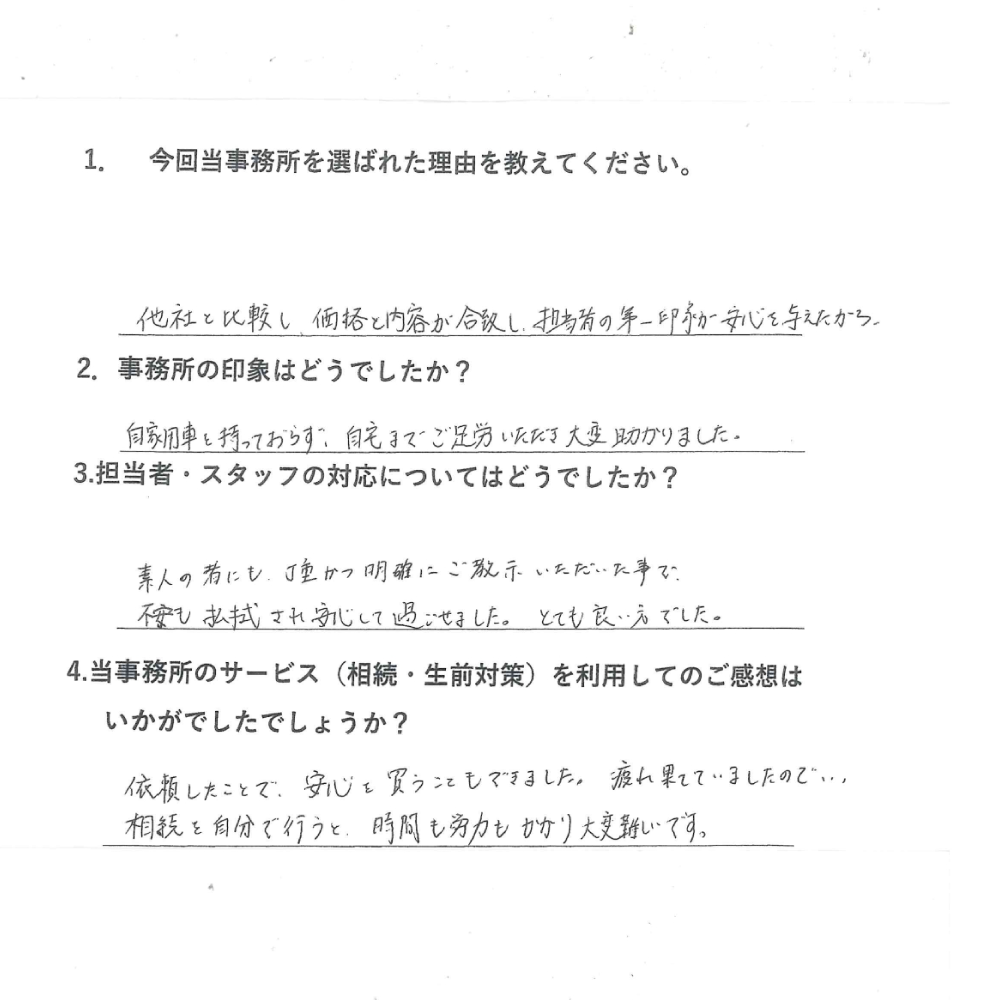 1.　今回当事務所を選ばれた理由を教えてください。
他社と比較し、価格と内容が合致し、担当者の第一印象が安心を与えたから。
2. 事務所の印象はどうでしたか？
自家用車を持っておらず、自宅までご足労いただき大変助かりました。
3.担当者・スタッフの対応についてはどうでしたか？
素人の者にも、丁重かつ明確にご教示いただいた事で、
不安も払拭され安心して過ごせました。とても良い方でした。
4.当事務所のサービス（相続・生前対策）を利用してのご感想は
いかがでしたでしょうか？
依頼したことで、安心を買うこともできました。疲れ果てていましたので…、
相続を自分で行うと、時間も労力もかかり大変難しいです。